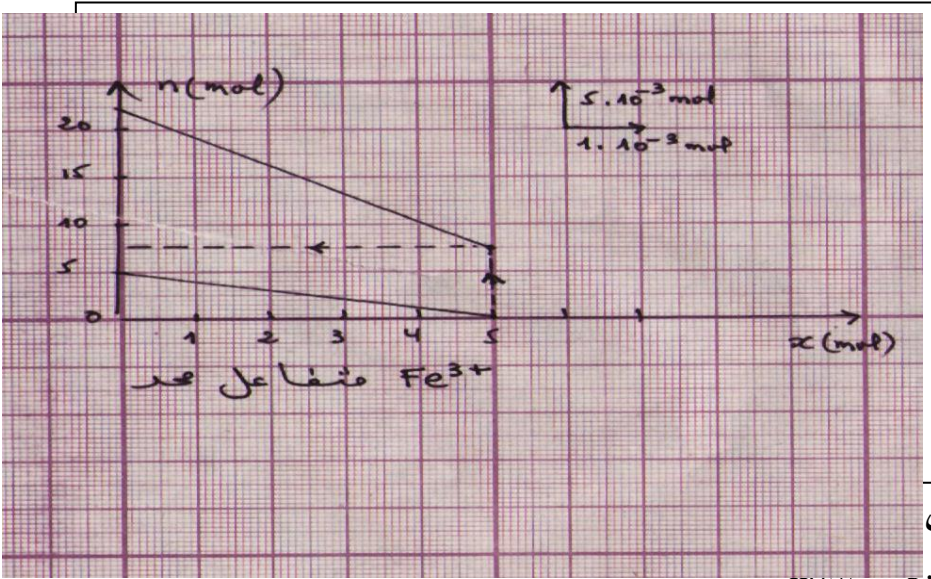 n(mol)
5.10⁻³ mol
1.10⁻³ mol
20
15
10
5
0
1 2 3 4 5
x (mol)
Fe³⁺ متفاعل محد